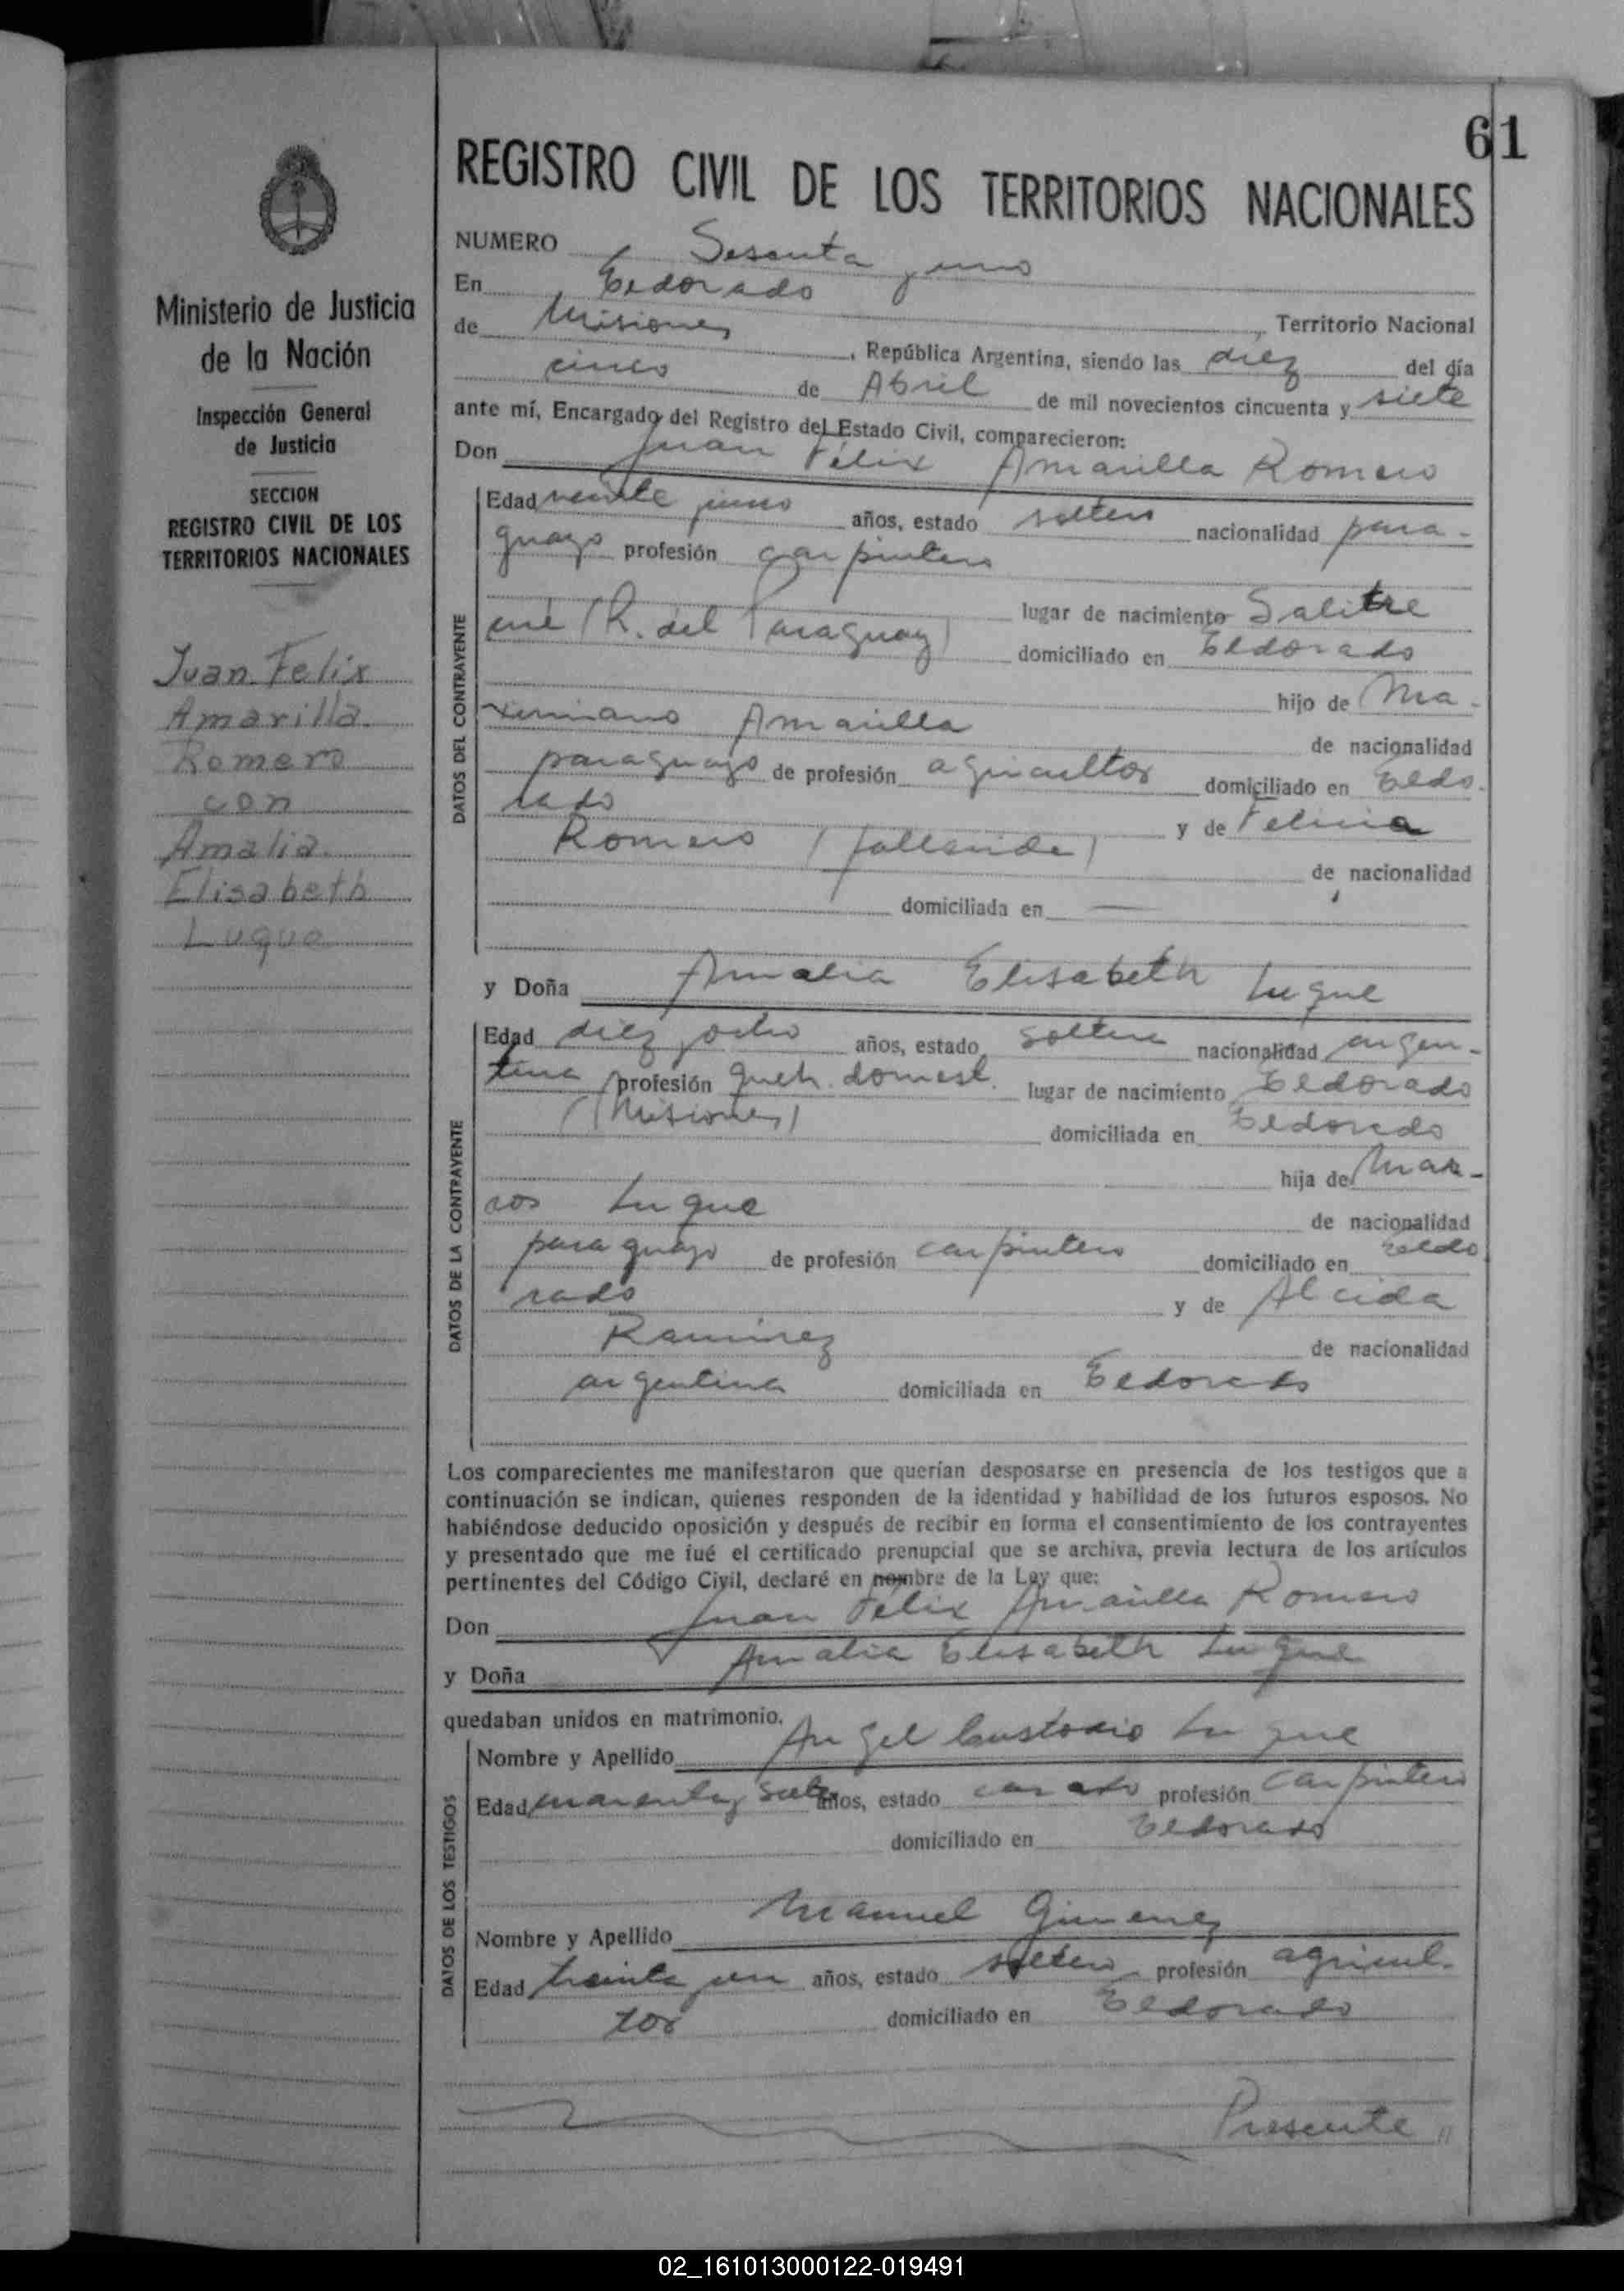 61
REGISTRO CIVIL DE LOS TERRITORIOS NACIONALES
Ministerio de Justicia
de la Nación
Inspección General
de Justicia
SECCION
REGISTRO CIVIL DE LOS
TERRITORIOS NACIONALES
Juan Felix
Amarilla
Romero
con
Amalia
Elisabeth
Luque
NUMERO Sesenta y uno
En Eldorado
de Misiones, Territorio Nacional
, República Argentina, siendo las diez del día
cinco de Abril de mil novecientos cincuenta y siete
ante mí, Encargado del Registro del Estado Civil, comparecieron:
Don Juan Félix Amarilla Romero
DATOS DEL CONTRAYENTE
Edad veinte y uno años, estado soltero nacionalidad para-
guayo profesión carpintero
lugar de nacimiento Salitre
cué (R. del Paraguay) domiciliado en Eldorado
hijo de Ma-
ximiano Amarilla
de nacionalidad
paraguayo de profesión agricultor domiciliado en Eldo-
rado
y de Felicia
Romero (fallecida)
de nacionalidad
domiciliada en —
y Doña Amalia Elisabeth Luque
DATOS DE LA CONTRAYENTE
Edad diez y ocho años, estado soltera nacionalidad argen-
tina profesión queh. domest. lugar de nacimiento Eldorado
(Misiones) domiciliada en Eldorado
hija de Mar-
cos Luque
de nacionalidad
paraguayo de profesión carpintero domiciliado en Eldo
rado y de Alcida
Ramirez
de nacionalidad
argentina domiciliada en Eldorado
Los comparecientes me manifestaron que querían desposarse en presencia de los testigos que a
continuación se indican, quienes responden de la identidad y habilidad de los futuros esposos. No
habiéndose deducido oposición y después de recibir en forma el consentimiento de los contrayentes
y presentado que me fué el certificado prenupcial que se archiva, previa lectura de los artículos
pertinentes del Código Civil, declaré en nombre de la Ley que:
Don Juan Félix Amarilla Romero
y Doña Amalia Elisabeth Luque
quedaban unidos en matrimonio.
DATOS DE LOS TESTIGOS
Nombre y Apellido Angel Custodio Luque
Edad cuarenta y siete años, estado casado profesión carpintero
domiciliado en Eldorado
Nombre y Apellido Manuel Gimenez
Edad treinta y un años, estado soltero profesión agricul-
tor domiciliado en Eldorado
Presente "
02_161013000122-019491